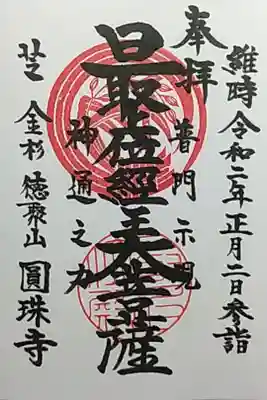 維時令和二年正月二日参詣
奉拝
普門示現
最上位經王大菩薩
神通之力
芝金杉徳聚山圓珠寺